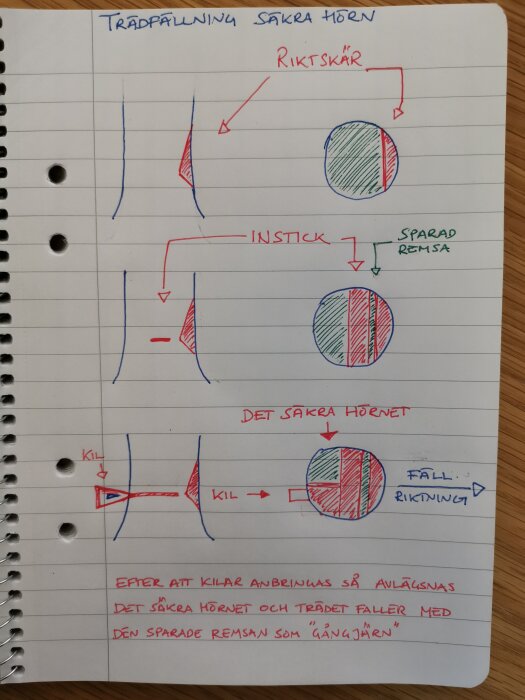 TRÄDFÄLLNING SÄKRA HÖRN
RIKTSKÄR
INSTICK
SPARAD
REMSA
DET SÄKRA HÖRNET
KIL
KIL
FÄLL
RIKTNING
EFTER ATT KILAR ANBRINGAS SÅ AVLÄGSNAS
DET SÄKRA HÖRNET OCH TRÄDET FALLER MED
DEN SPARADE REMSAN SOM "GÅNGJÄRN"